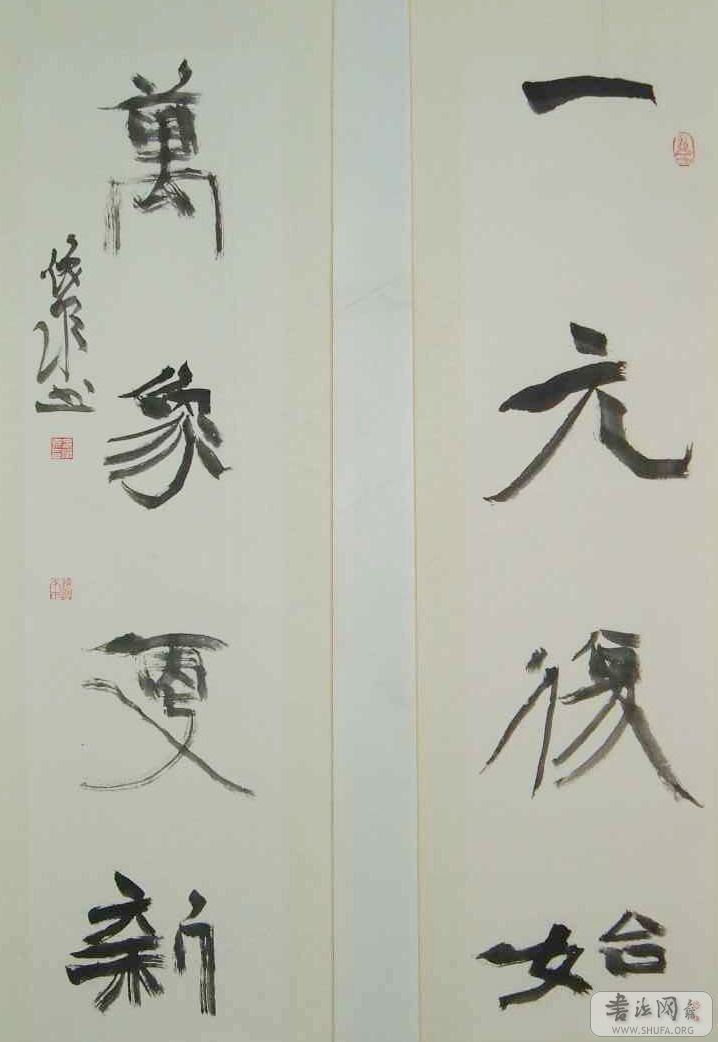 一元復始
萬象更新
书法网
WWW.SHUFA.ORG